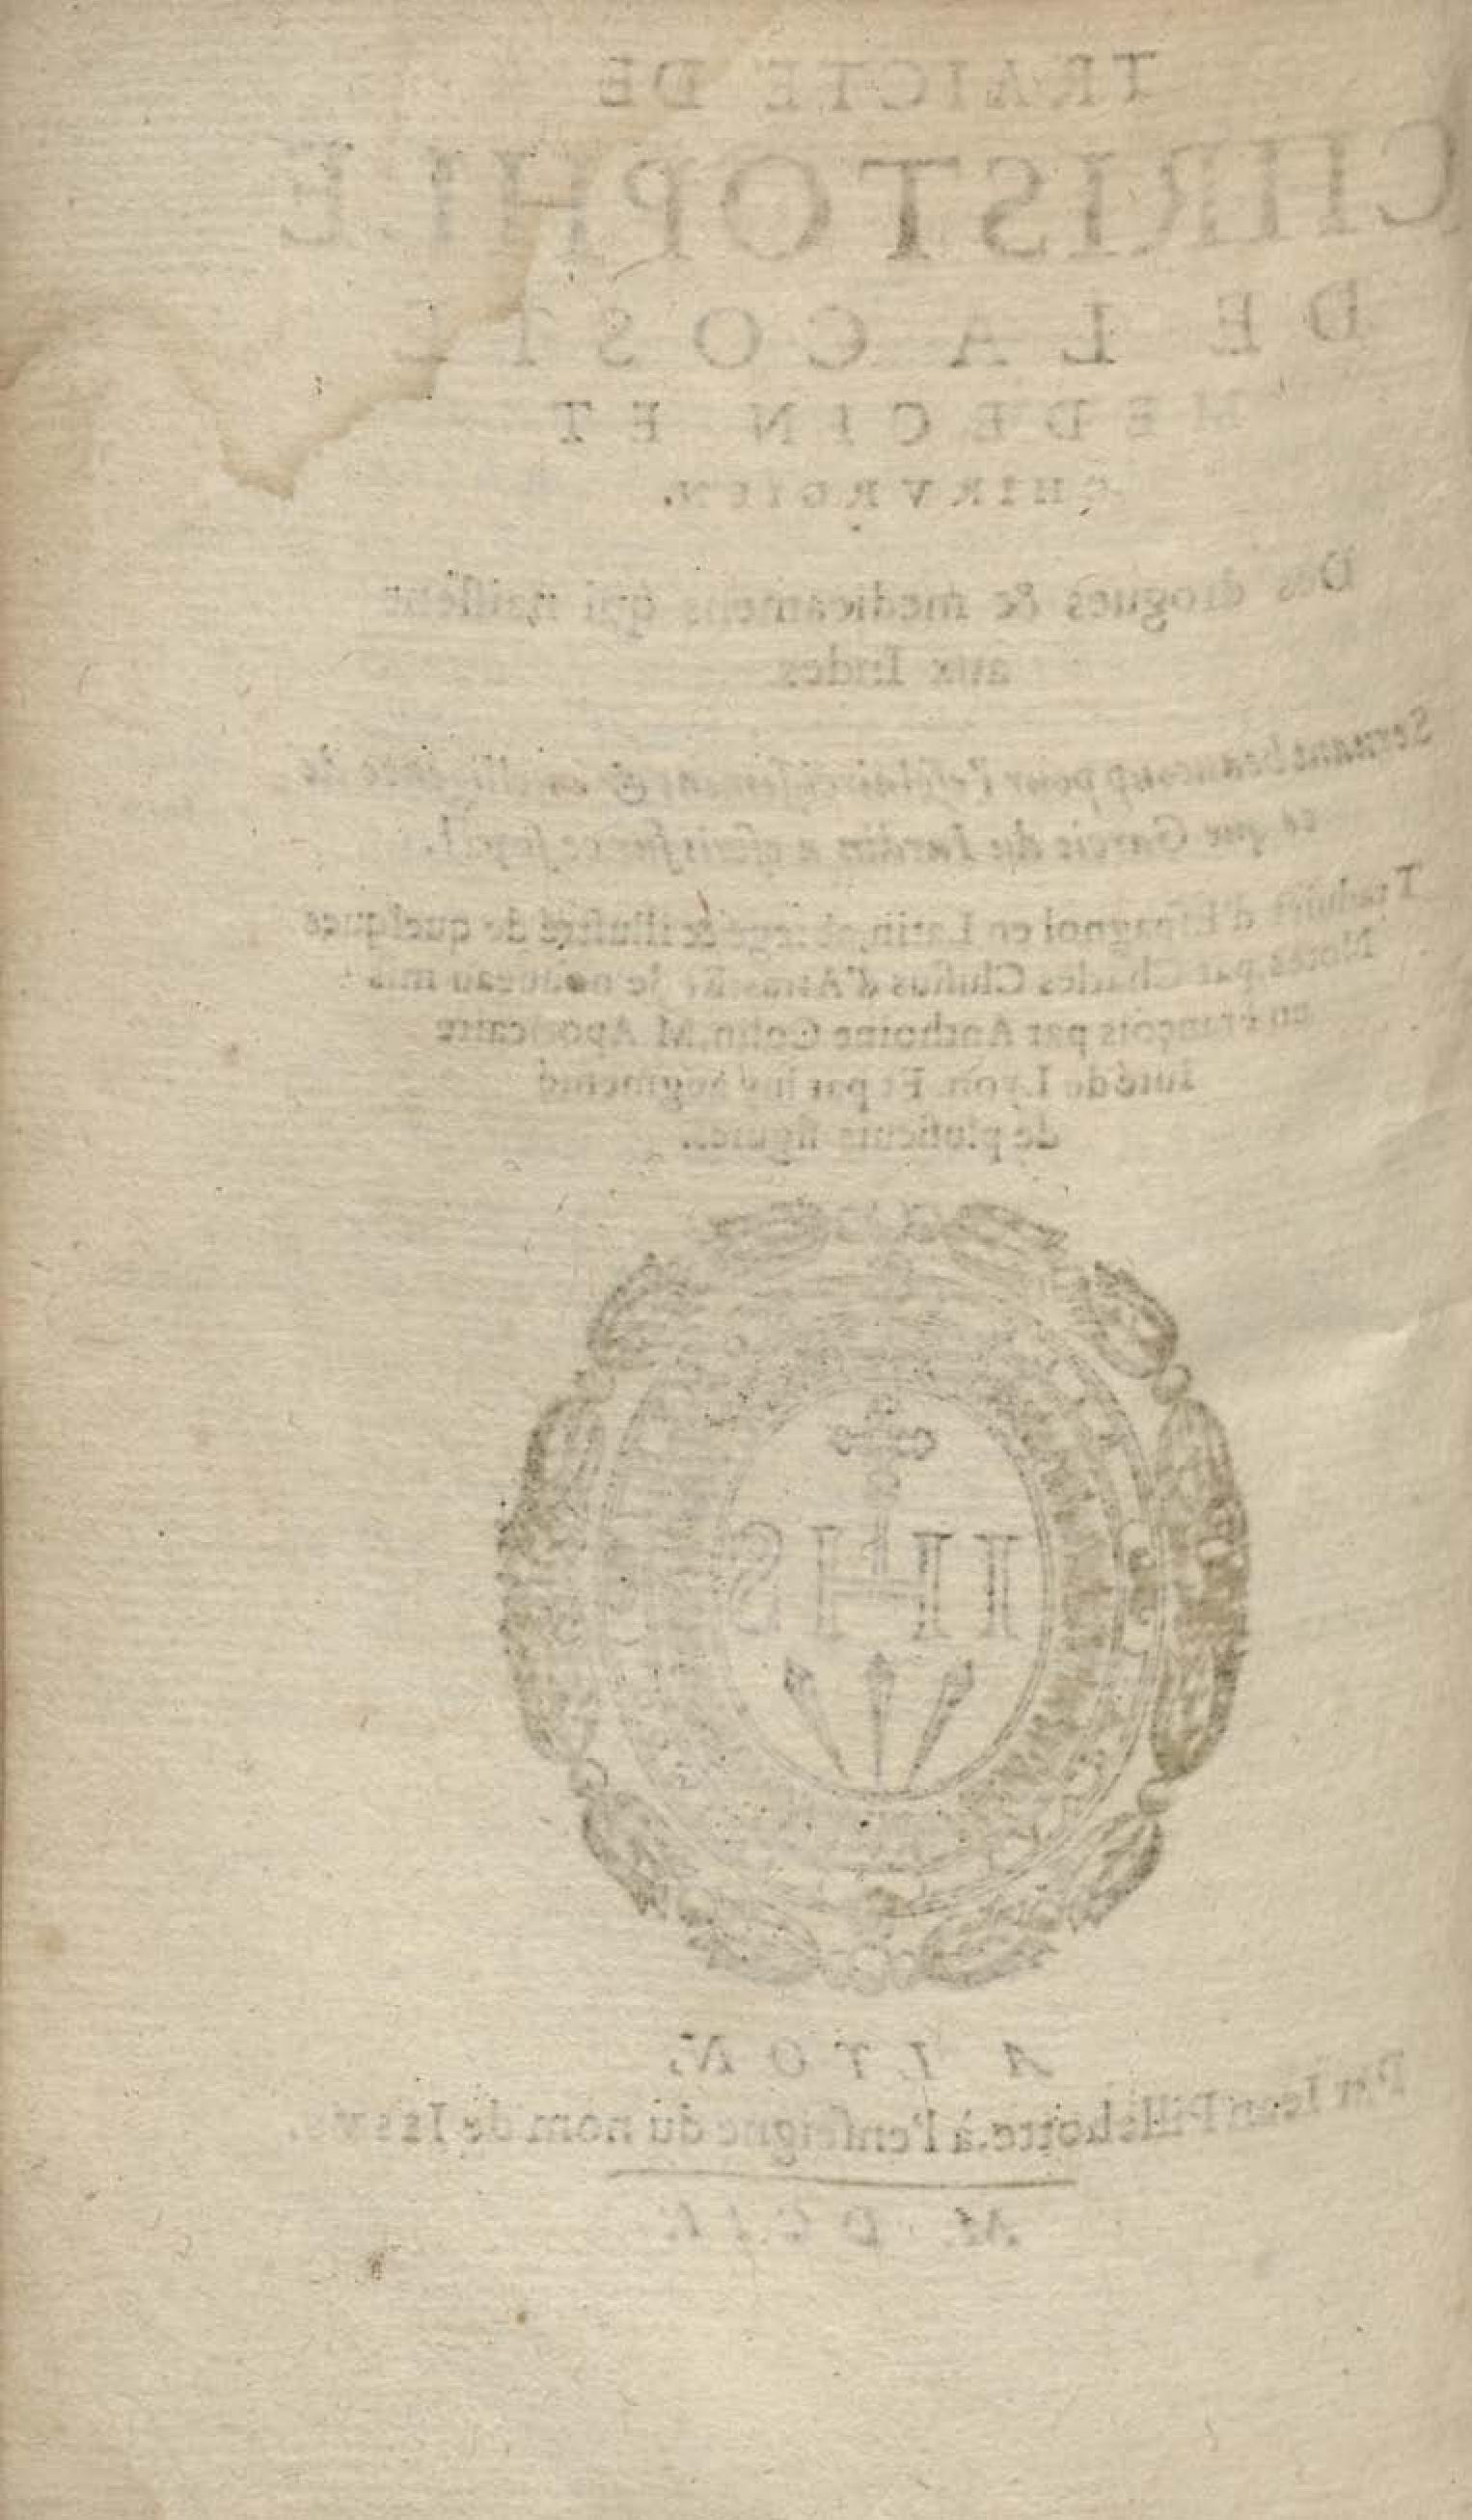 TRAICTE DE
CHRISTOPHLE
DE LA COSTE
MEDECIN ET
CHIRVRGIEN.
Des drogues & medicamens qui naissent
aux Indes.
Seruant beaucoup pour l'esclaircissement & intelligence de
ce que Garcie du Iardin a escrit sur ce subiect.
Traduict d'Espagnol en Latin, abregé & illustré de quelques
Notes, par Charles Clusius d'Arras: & de nouueau mis
en François par Anthoine Colin, M. Apoticaire
Iuré de Lyon. Et par luy augmenté
de plusieurs figures.
IHS
A LYON,
Par Iean Pillehotte, à l'enseigne du nom de IESVS.
M. DCII.